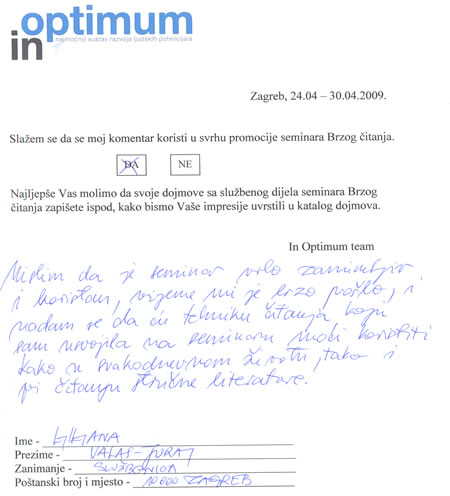 in optimum
najmoćniji sustav razvoja ljudskih potencijala
Zagreb, 24.04 – 30.04.2009.
Slažem se da se moj komentar koristi u svrhu promocije seminara Brzog čitanja.
DA NE
Najljepše Vas molimo da svoje dojmove sa službenog dijela seminara Brzog
čitanja zapišete ispod, kako bismo Vaše impresije uvrstili u katalog dojmova.
In Optimum team
Mislim da je seminar vrlo zanimljiv
i koristan, vrijeme mi je brzo prošlo, i
nadam se da ću tehniku čitanja koju
sam usvojila na seminaru moći koristiti
kako u svakodnevnom životu, tako i
pri čitanju stručne literature.
Ime - LJILJANA
Prezime - VALAS-JURAJ
Zanimanje - SLUŽBENICA
Poštanski broj i mjesto - 10000 ZAGREB